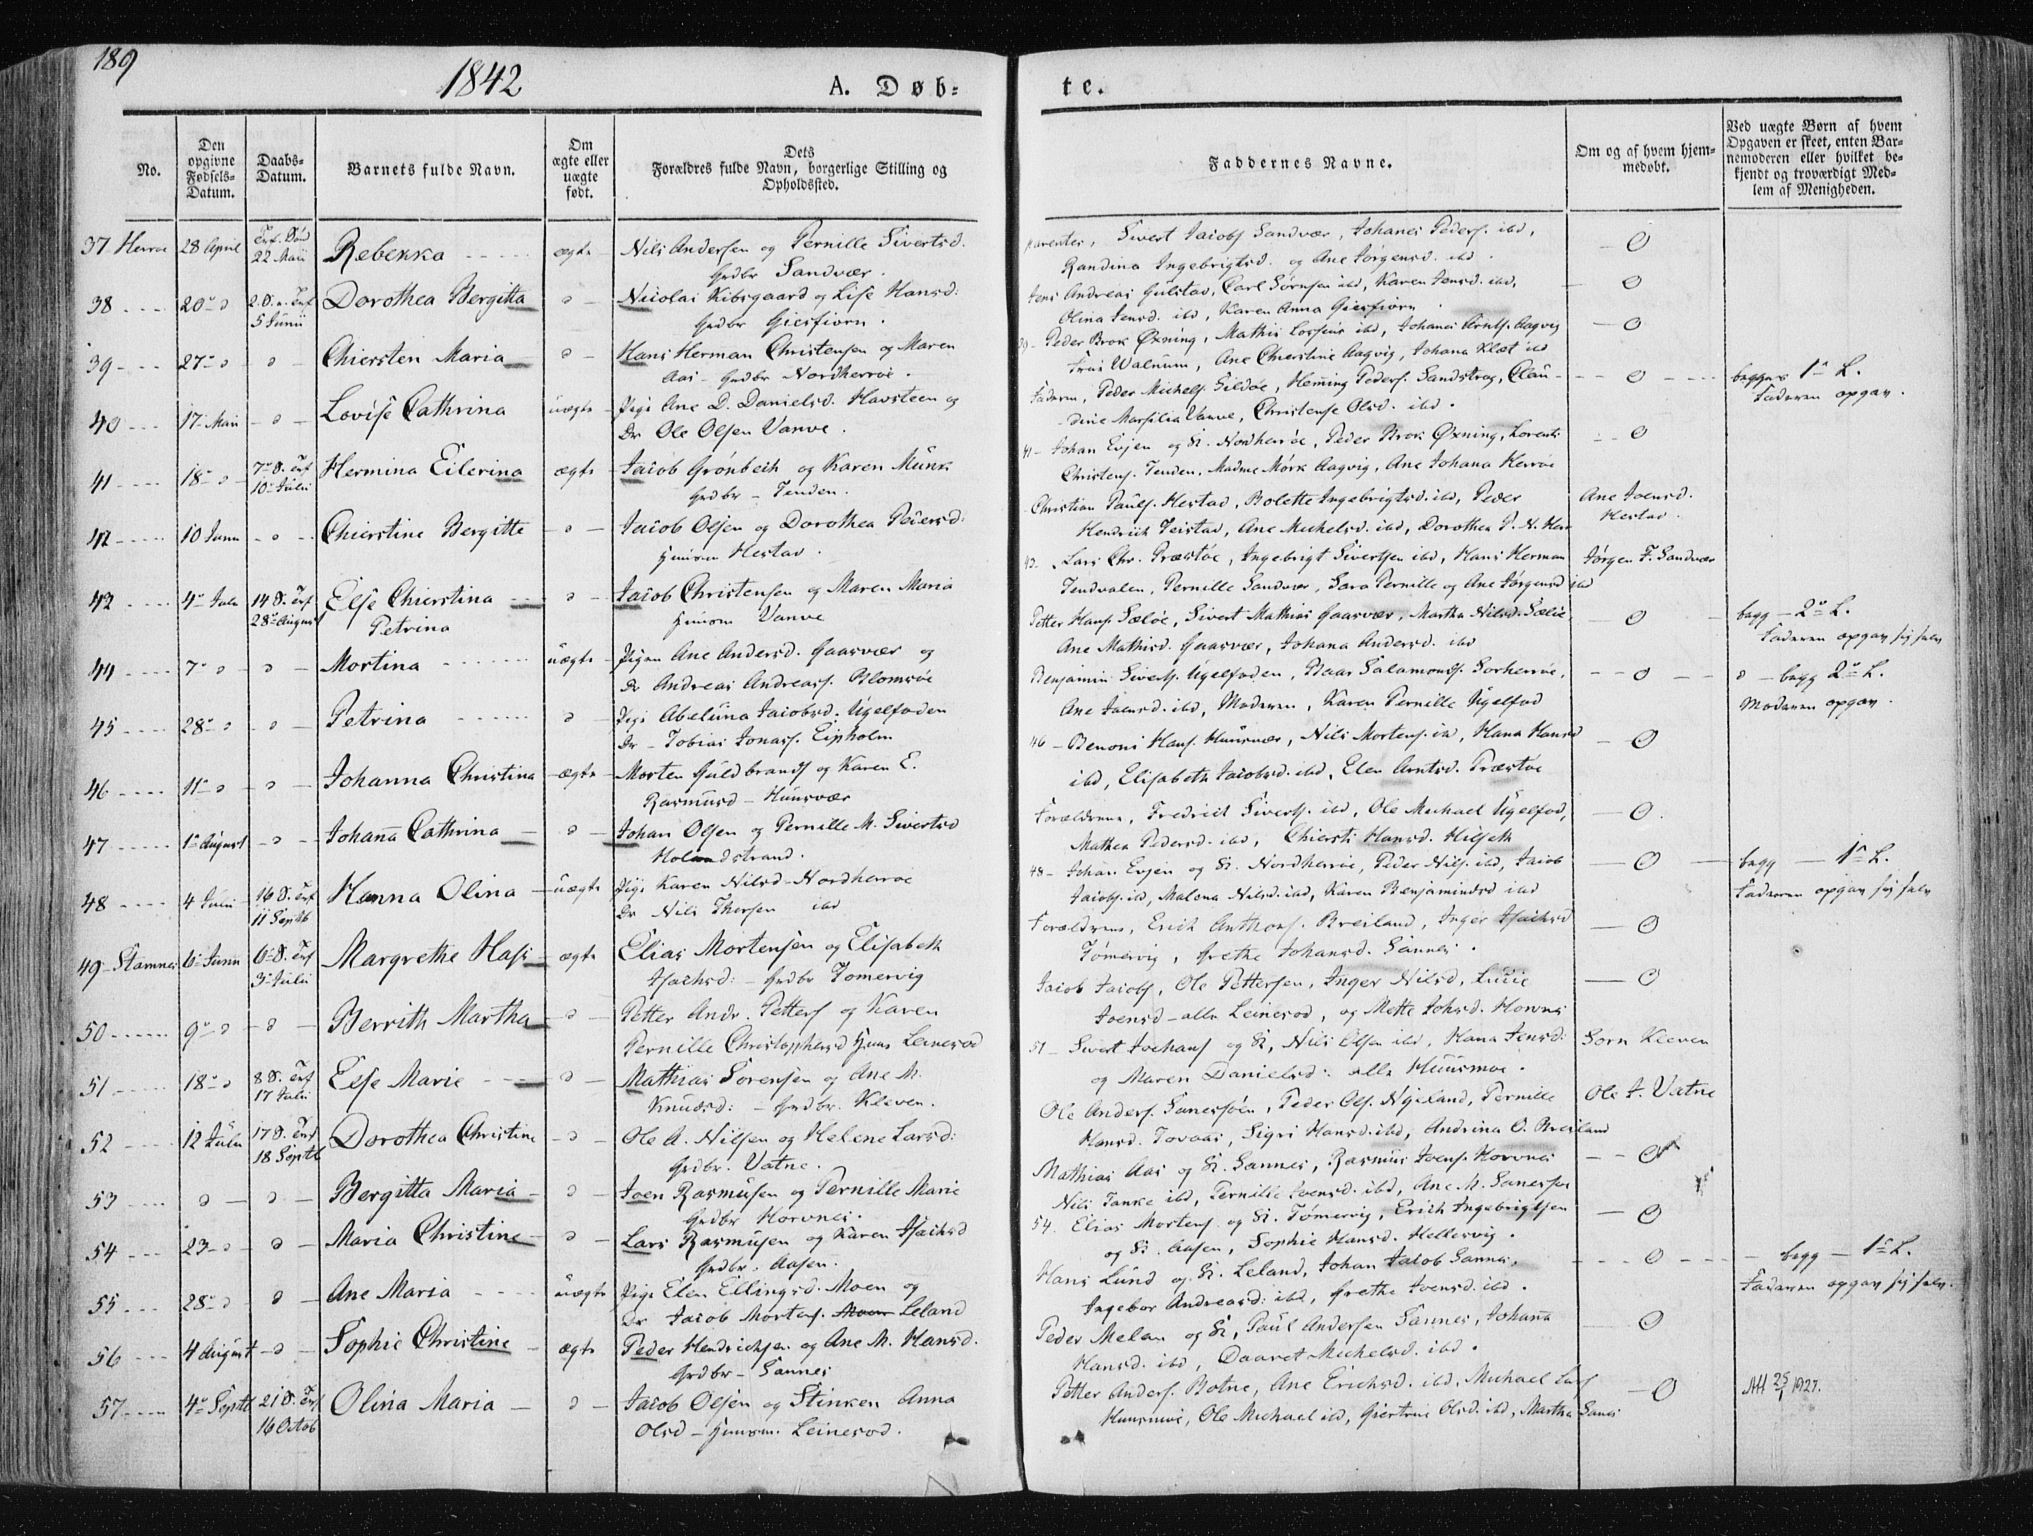 189
1842
A. Døb-
te.
No.
Den opgivne Fødsels-Datum.
Daabs-Datum.
Barnets fulde Navn.
Om ægte eller uægte født.
Dets Forældres fulde Navn, borgerlige Stilling og Opholdssted.
Faddernes Navne.
Om og af hvem hjem-medøbt.
Ved uægte Børn af hvem Opgaven er skeet, enten Bar-nemoderen eller hvilket be-kjendt og troværdigt Med-lem af Menigheden.
37 Herroe 28 April 22 Maii Rebekka ægte Nils Andersen og Pernille Sivertsd.
Grdbr Sandvær.
Parentes, Sivert Jacobs Sandvær, Johanes Peders. ibd,
Randina Ingebrigtsd. og Ane Jørgensd. ibd. O
38 20 d 2 S. e. Trf 5 Junii Dorothea Bergitta d Nicolai Kibsgaard og Lise Hansd:
Grdbr Giesfiorn.
Jens Andreas Gulstad, Carl Sørnsen ibd, Karen Jensd. ibd,
Olina Jensd. ibd, Karen Anna Giesfiorn O
39 27 d d Chiersten Maria d Hans Herman Christensen og Maren
Aas - Grdbr Nordherrøe.
39 - Peder Brok Øxning, Mathis ibd, Johanes Aagvig
Walnum, Ane Chierstine Aagvig, Johana Klæt ibd O
40 17 Maii d Lovise Cathrina uægte Pige Ane D. Danielsd. Havsteen og
Dr Ole Olsen Vanve.
Faderen, Peder Michels Gildøe, Heming Peders. Sandstrag, Clau-
dine Marsilia Vanve, Christense Olsd. ibd. O begges 1ste L.
Faderen opgav.
41 18 d 7 S. Trf 10 Julii Hermina Eilerina ægte Jacob Grønbech og Karen Munk
Grdbr - Tenden.
41 - Johan Evjen og H. Nordherrøe, Peder Brok Øxning, Lorents
Christens. Tenden, Madme Mørk Aagvig, Ane Johana Herrøe O
42 10 Junii d Chierstine Bergitte d Jacob Olsen og Dorothea Pedersd:
Huusm Hestad.
Christian Pauls. Hestad, Bolette Ingebrigtsd. ibd, Peder
Hendrich Teistad, Ane Michelsd. ibd, Dorothea P. N. Her
Ane Joensd. Hestad.
43 4 Julii 14 S. Trf 28 August Else Chierstina Petrina d Jacob Christensen og Maren Maria
Huusm Vanve
43 - Lars Chr. Præstøe, Ingebrigt Sivertsen ibd, Hans Herman
Tendvalen, Pernille Sandvær, Sara Pernille og Ane Jørgensd ibd
Jørgen F. Sandvær
44 7 d d Mortina uægte Pigen Ane Andersd. Gaasvær og
Dr Andreas Andreas. Blomsøe
Petter Hans. Sæløe, Sivert Mathias Gaasvær, Martha Nilsd. Sæløe
Ane Mathisd. Gaasvær, Johana Andersd. ibd O begg - 2 L.
Faderen opgav sig selv
45 28 d d Petrina d Pige Abeluna Jacobsd. Ugelfoden
Dr - Tobias Jonas. Eipholm
Benjamin Siverts. Ugelfoden, Baar Salamons. Sorherrøe,
Ane Joensd. ibd, Moderen, Karen Pernille Ugelfod O d - begg 2 L.
Moderen opgav.
46 11 d d Johanna Christina ægte Morten Guldbrands og Karen E.
Rasmusd - Huusvær
46 - Benoni Hans. Huusvær, Nils Mortens. ibd, Hana Hansd
ibd, Elisabeth Jacobsd. ibd, Elen Arntsd. Præstøe O
47 1 August d Johana Cathrina d Johan Olsen og Pernille M. Sivertsd
Holandstrand.
Forældrene, Fredrich Siverts. ibd, Ole Michael Ugelfod,
Mathea Pedersd. ibd, Chiersti Hansd. Hilseth O.
48 4 Julii 16 S. Trf 11 Septb Hanna Olina uægte Pige Karen Nilsd - Nordherroe
Dr Nils Thorsen ibd
48 - Johan Evjen og H. Nordherrøe, Peder Nils. ibd, Jacob
Jacobs. ibd, Malena Nilsd. ibd, Karen Benjaminsd ibd O begg - 1 L.
Faderen opgav sig selv
49 Stamnes 6 Junii 6 S. Trf 3 Julii Margrethe Hass ægte Elias Mortensen og Elisabeth
Isachsd: - Grdbr Tomervig
Forældrene, Erich Anthons. Breiland, Inger Isachsd
Tømervig, Grethe Johansd. Sannes. O
50 9 d d Berrith Martha d Petter Andr. Petters og Karen
Pernille Christophersd Huus Leinesod
Jacob Jacobs, Ole Pettersen, Inger Nilsd, Lucie
Joensd - alle Leinesod, og Mette Johsd. Horvnes O
51 18 d 8 S. Trf 17 Julii Else Marie d Mathias Sorensen og Ane M.
Knudsd: - Grdbr. Kleven.
51 - Sivert Joehans og H, Nils Olsen ibd, Hana Jensd:
og Maren Danielsd: alle Huusmoe.
Sørn Kleven
52 12 Julii 17 S. Trf 18 Septb Dorothea Christine d Ole A. Nilsen og Helene Larsd:
Grdbr. Vatne.
Ole Anders. Sanessøen, Peder Ols. Nyland, Pernille
Hansd. Tovaas, Sigri Hansd. ibd, Andrina O. Breiland
Ole J. Vatne
53 d d Bergitta Maria d Joen Rasmusen og Pernille Marie
Grdbr Horvnes.
Mathias Aas og H. Sannes, Rasmus Joens. Horvnes
Nils Tanke ibd, Pernille Joensd. ibd, Ane M. Sanessøe O
54 23 d d Maria Christine d Lars Rasmusen og Karen Isachsd
Grdbr. Aasen.
54 Elias Mortens og H. Tømervig, Erich Ingebrigtsen
og H. Aasen, Sophie Hansd. Hellesvig. O
55 28 d d Ane Maria uægte Pige Elen Ellingsd. Moen og
Dr Jacob Mortens. Moen Leland
Hans Lund og H. Leland, Johan Jacob Sannes,
Ingebor Andreasd: ibd, Grethe Joensd. ibd. O - begg - 1ste L.
Faderen opgav sig selv.
56 4 August d Sophie Christine ægte Peder Hendrichsen og Ane M. Hansd.
Grdbr - Sannes
Peder Melan og H, Paul Andersen Sannes, Johana
Hansd. ibd, Daaret Michelsd. ibd. O
57 4 Septb 21 S. Trf 16 Octob Olina Maria d Jacob Olsen og Stinken Anna
Olsd - Huusm. Leinesod.
Petter Anders. Botne, Ane Erichsd. ibd, Michael Lars
Huusmoe, Ole Michael ibd, Giertrue Olsd. ibd, Martha Sanes O
Att 25/1 1927.